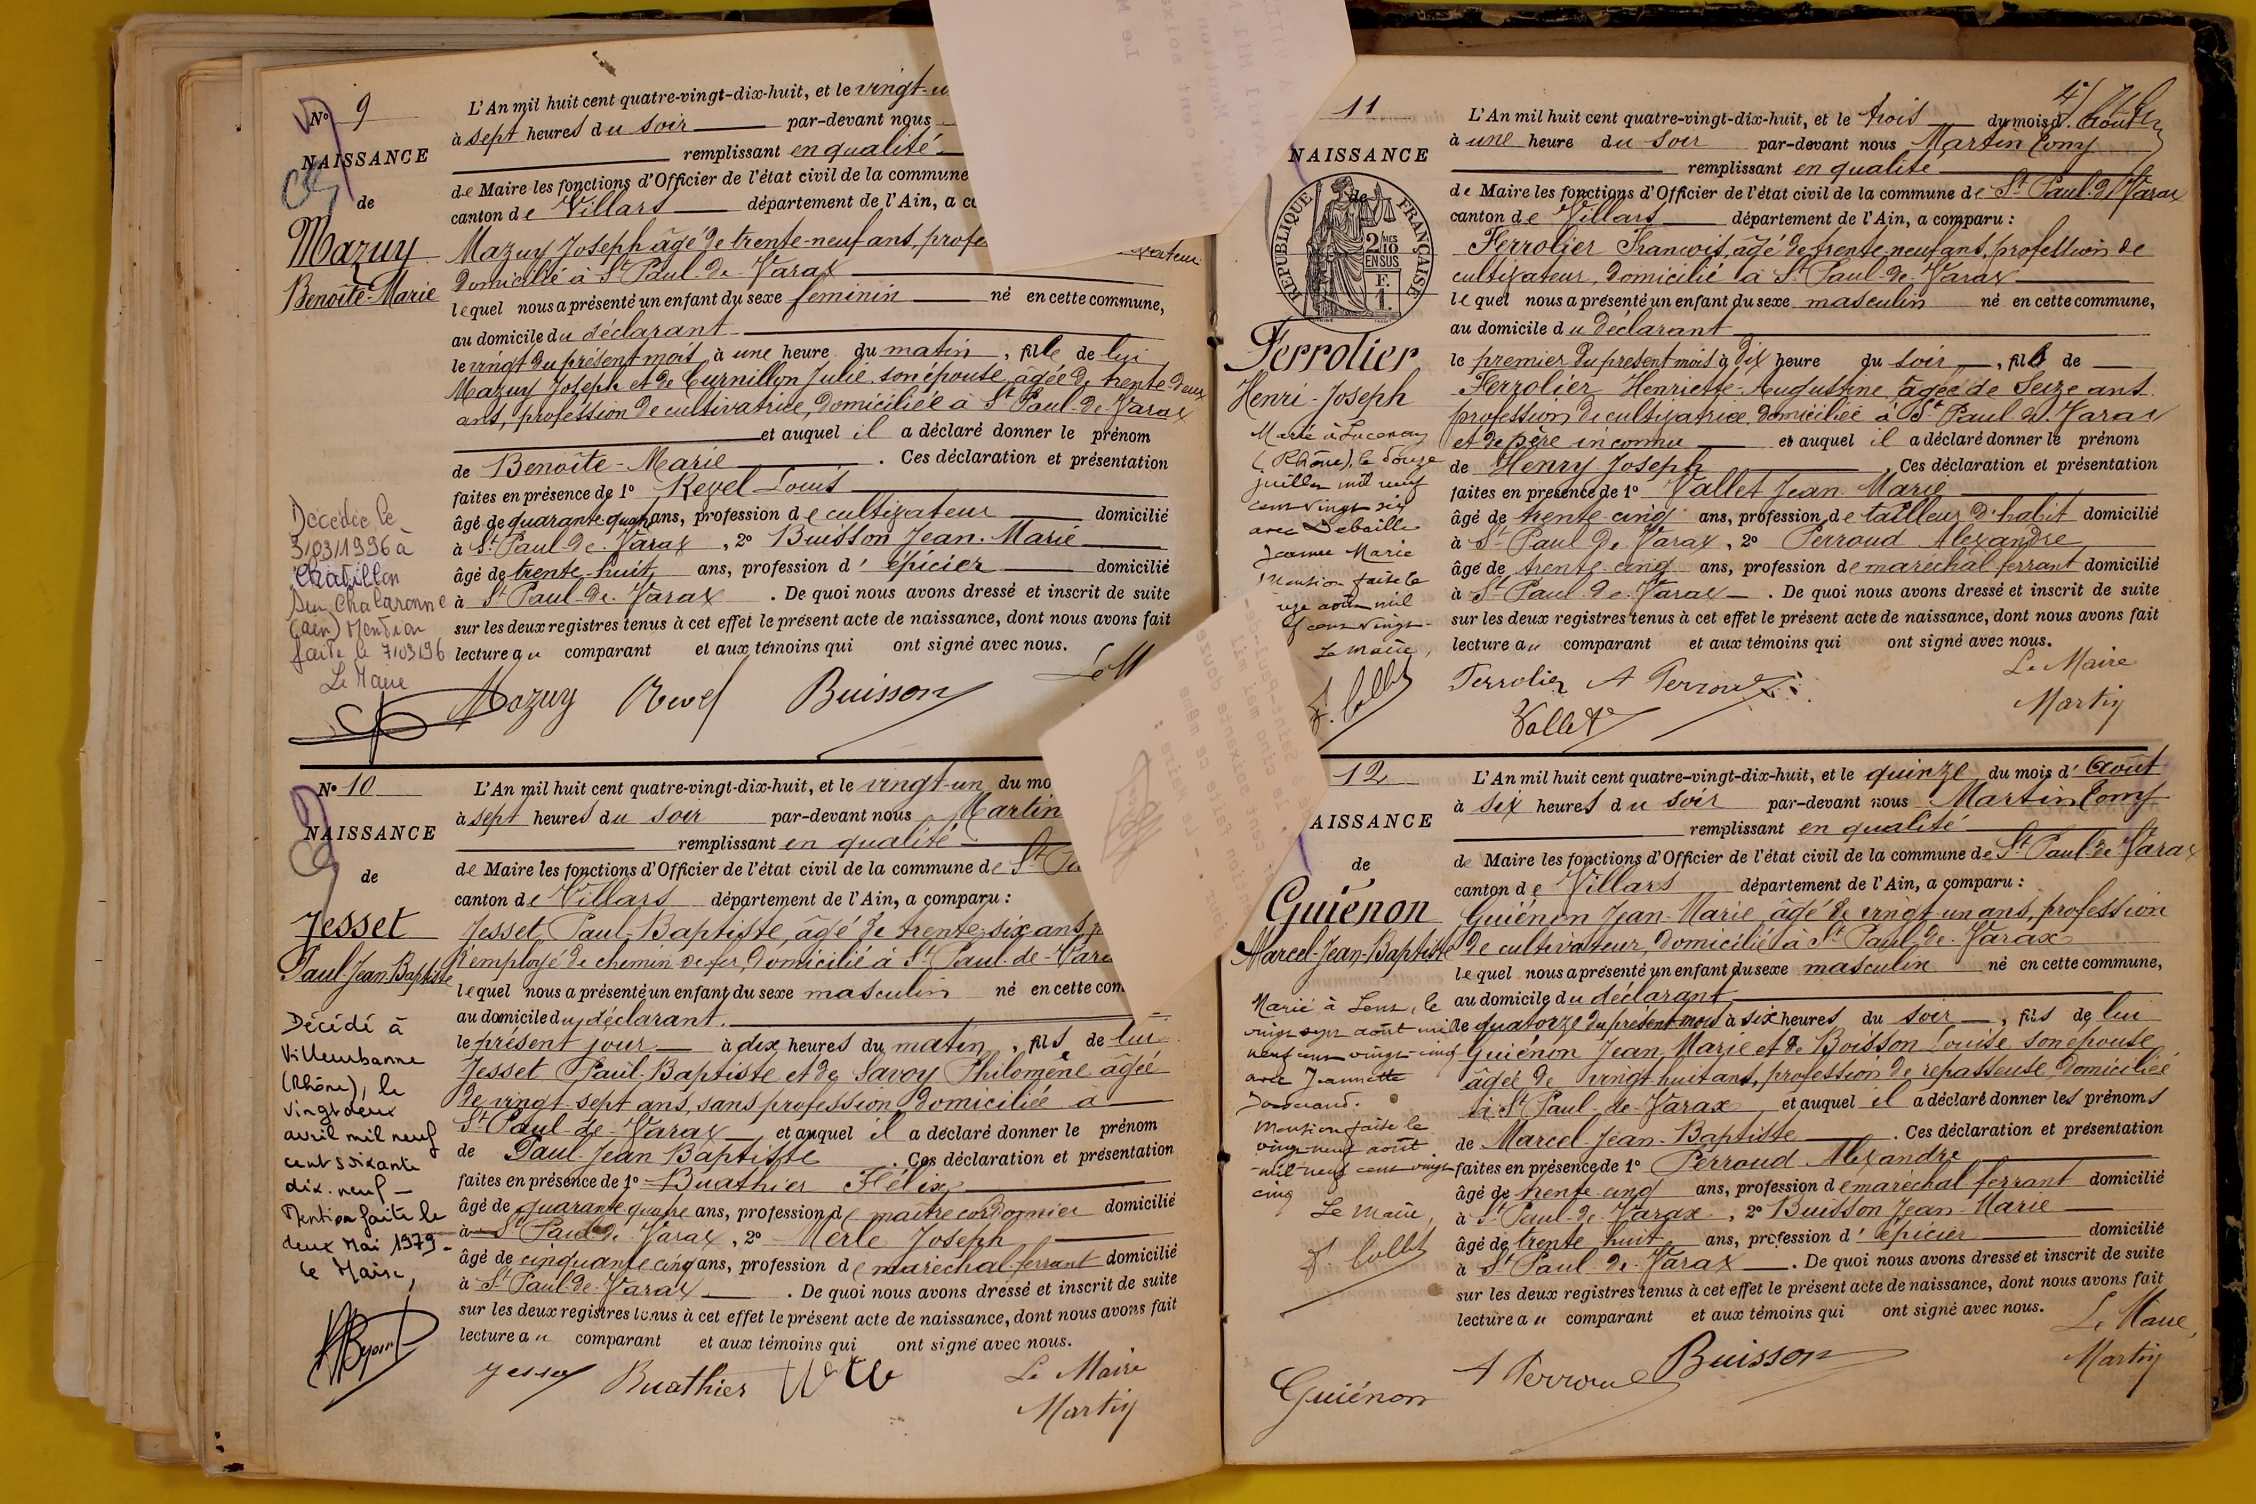 Nº 9
NAISSANCE
de
Mazuy
Benoîte-Marie
Décédée le
3/03/1996 à
Chatillon
sur Chalaronne
(ain) Mention
faite le 7/03/96
Le Maire
L'An mil huit cent quatre-vingt-dix-huit, et le vingt-u
à sept heures du soir par-devant nous
remplissant en qualité
de Maire les fonctions d'Officier de l'état civil de la commune
canton de Villars département de l'Ain, a c
Mazuy Joseph âgé de trente-neuf ans, profe
domicilié à St Paul-de-Varax
lequel nous a présenté un enfant du sexe féminin né en cette commune,
au domicile du déclarant
le vingt du présent mois à une heure du matin, fille de lui
Mazuy Joseph et de Curnillon Julie son épouse, âgée de trente-deux
ans, profession de cultivatrice, domiciliée à St Paul-de-Varax
et auquel il a déclaré donner le prénom
de Benoîte-Marie. Ces déclaration et présentation
faites en présence de 1º Revel Louis
âgé de quarante-quatre ans, profession de cultivateur domicilié
à St Paul-de-Varax, 2º Buisson Jean-Marie
âgé de trente-huit ans, profession d'épicier domicilié
à St Paul-de-Varax. De quoi nous avons dressé et inscrit de suite
sur les deux registres tenus à cet effet le présent acte de naissance, dont nous avons fait
lecture au comparant et aux témoins qui ont signé avec nous.
Le M
Mazuy Revel Buisson
Nº 10
NAISSANCE
de
Jesset
Paul Jean Baptiste
Décédé à
Villeurbanne
(Rhône), le
vingt deux
avril mil neuf
cent soixante
dix-neuf -
Mention faite le
deux Mai 1979 -
Le Maire,
L'An mil huit cent quatre-vingt-dix-huit, et le vingt-un du mo
à sept heures du soir par-devant nous Martin
remplissant en qualité
de Maire les fonctions d'Officier de l'état civil de la commune de St Pa
canton de Villars département de l'Ain, a comparu :
Jesset Paul-Baptiste, âgé de trente-six ans, p
d'employé de chemin de fer, domicilié à St Paul-de-Vara
lequel nous a présenté un enfant du sexe masculin né en cette com
au domicile du déclarant.
le présent jour à dix heures du matin, fils de lui
Jesset Paul-Baptiste et de Savoy Philomène âgée
de vingt-sept ans, sans profession, domiciliée à
St Paul-de-Varax et auquel il a déclaré donner le prénom
de Paul-Jean Baptiste. Ces déclaration et présentation
faites en présence de 1º Buathier Félix
âgé de quarante quatre ans, profession de maître cordonnier domicilié
à St Paul de Varax, 2º Merle Joseph
âgé de cinquante cinq ans, profession de maréchal ferrant domicilié
à St Paul-de-Varax. De quoi nous avons dressé et inscrit de suite
sur les deux registres tenus à cet effet le présent acte de naissance, dont nous avons fait
lecture au comparant et aux témoins qui ont signé avec nous.
Jesset Buathier Le Maire
Martin
11
NAISSANCE
de
RÉPUBLIQUE FRANÇAISE
2/10 MES
EN SUS
F.
1
Ferrolier
Henri-Joseph
Marié à Lucenay
(Rhône), le douze
juillet mil neuf
cent vingt six
avec Debaille
Jeanne Marie
Mention faite le
août mil
cent vingt-
Le Maire,
F. Collet
L'An mil huit cent quatre-vingt-dix-huit, et le trois du mois d'Août
à une heure du soir par-devant nous Martin Comy
remplissant en qualité
de Maire les fonctions d'Officier de l'état civil de la commune de St Paul-de-Varax
canton de Villars département de l'Ain, a comparu :
Ferrolier François, âgé de trente-neuf ans, profession de
cultivateur, domicilié à St Paul-de-Varax
lequel nous a présenté un enfant du sexe masculin né en cette commune,
au domicile du déclarant
le premier du présent mois à dix heure du soir, fils de
Ferrolier Henriette-Augustine, âgée de seize ans
profession de cultivatrice domiciliée à St Paul-de-Varax
et de père inconnu et auquel il a déclaré donner le prénom
de Henry Joseph. Ces déclaration et présentation
faites en présence de 1º Vallet Jean-Marie
âgé de trente-cinq ans, profession de tailleur d'habit domicilié
à St Paul de Varax, 2º Perroud Alexandre
âgé de trente-cinq ans, profession de maréchal ferrant domicilié
à St Paul-de-Varax. De quoi nous avons dressé et inscrit de suite
sur les deux registres tenus à cet effet le présent acte de naissance, dont nous avons fait
lecture au comparant et aux témoins qui ont signé avec nous.
Le Maire
Ferrolier A Perroud Martin
Vallet
12
AISSANCE
de
Guiénon
Marcel-Jean-Baptiste
Marié à Lens, le
vingt sept août mil
neuf cent vingt-cinq
avec Jeannette
Mention faite le
vingt neuf août
mil neuf cent vingt
cinq
Le Maire,
F. Collet
L'An mil huit cent quatre-vingt-dix-huit, et le quinze du mois d'Août
à six heures du soir par-devant nous Martin Comy
remplissant en qualité
de Maire les fonctions d'Officier de l'état civil de la commune de St Paul-de-Varax
canton de Villars département de l'Ain, a comparu :
Guiénon Jean-Marie, âgé de vingt-un ans, profession
de cultivateur, domicilié à St Paul-de-Varax
lequel nous a présenté un enfant du sexe masculin né en cette commune,
au domicile du déclarant
le quatorze du présent mois à six heures du soir, fils de lui
Guiénon Jean Marie et de Boisson Louise son épouse
âgée de vingt huit ans, profession de repasseuse, domiciliée
à St Paul-de-Varax et auquel il a déclaré donner les prénoms
de Marcel-Jean-Baptiste. Ces déclaration et présentation
faites en présence de 1º Perroud Alexandre
âgé de trente-cinq ans, profession de maréchal ferrant domicilié
à St Paul-de-Varax, 2º Buisson Jean-Marie
âgé de trente huit ans, profession d'épicier domicilié
à St Paul-de-Varax. De quoi nous avons dressé et inscrit de suite
sur les deux registres tenus à cet effet le présent acte de naissance, dont nous avons fait
lecture au comparant et aux témoins qui ont signé avec nous.
Le Maire,
A Perroud Buisson Martin
Guiénon